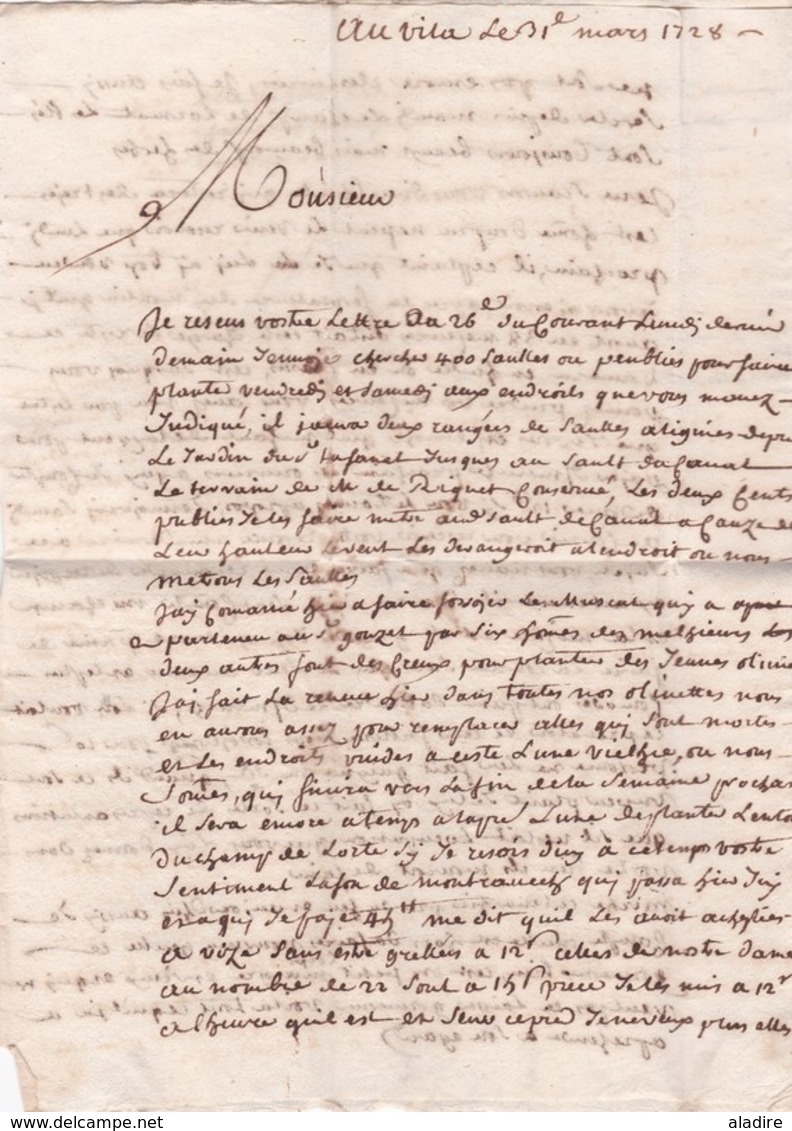 Au vila Le 31e mars 1728
Monsieur
Je reseus vostre Lettre Du 26e du Courant Lundi dernier
demain J'enuoye chercher 400 Saulles ou peubliés pour faire
plante vendredi et Samedi aux endroits que vous m'auez
Indiqué, il y aura deux rangées de Saulles aligniés depuis
Le Jardin du Sr Jusques au Sault du Canal
Le terrain de Mr de Riquet Conserué, Les deux Cents
publiés Je les faire mettre au Sault de Canal a Cauze de
Leur hauteur Le vent Les derangeroit a l'endroit ou nous
metons Les Saulles
J'ay Comancé hier a faire Le Muscat qui a
apartenu au Sr gouzet par Six hômes des meilheurs Les
deux autres font des Creux pour planter des Jeunes oliuiers
J'ai fait La reueue hier dans toutes nos oliuettes nous
en aurons assez pour remplacer celles qui sont mortes
et Les endroits vuides a ceste Lune vielhe, ou nous
Somes, qui finira vers La fin de la Semaine prochaine
il Sera encore a temps a l'aspre Lune de planter L'entour
Du champ de Lorte Sy Je resois d'icy a ce temps vostre
Sentiment Lafon de qui passa hier Icy
et a qui Je paye 4h me dit qu'il Les auoit achepties
a vize Sans estre grellées a 12s celles de nostre dame
au nombre de 22 Sont a 15s piece Je les mis a 12s
a l'heure qu'il est et Seur ce pied J'en veux plus elles